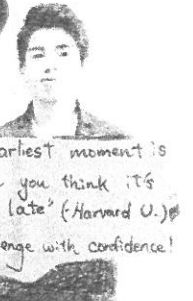 arliest moment is
you think it's
late" (-Harvard U.)
enge with confidence!